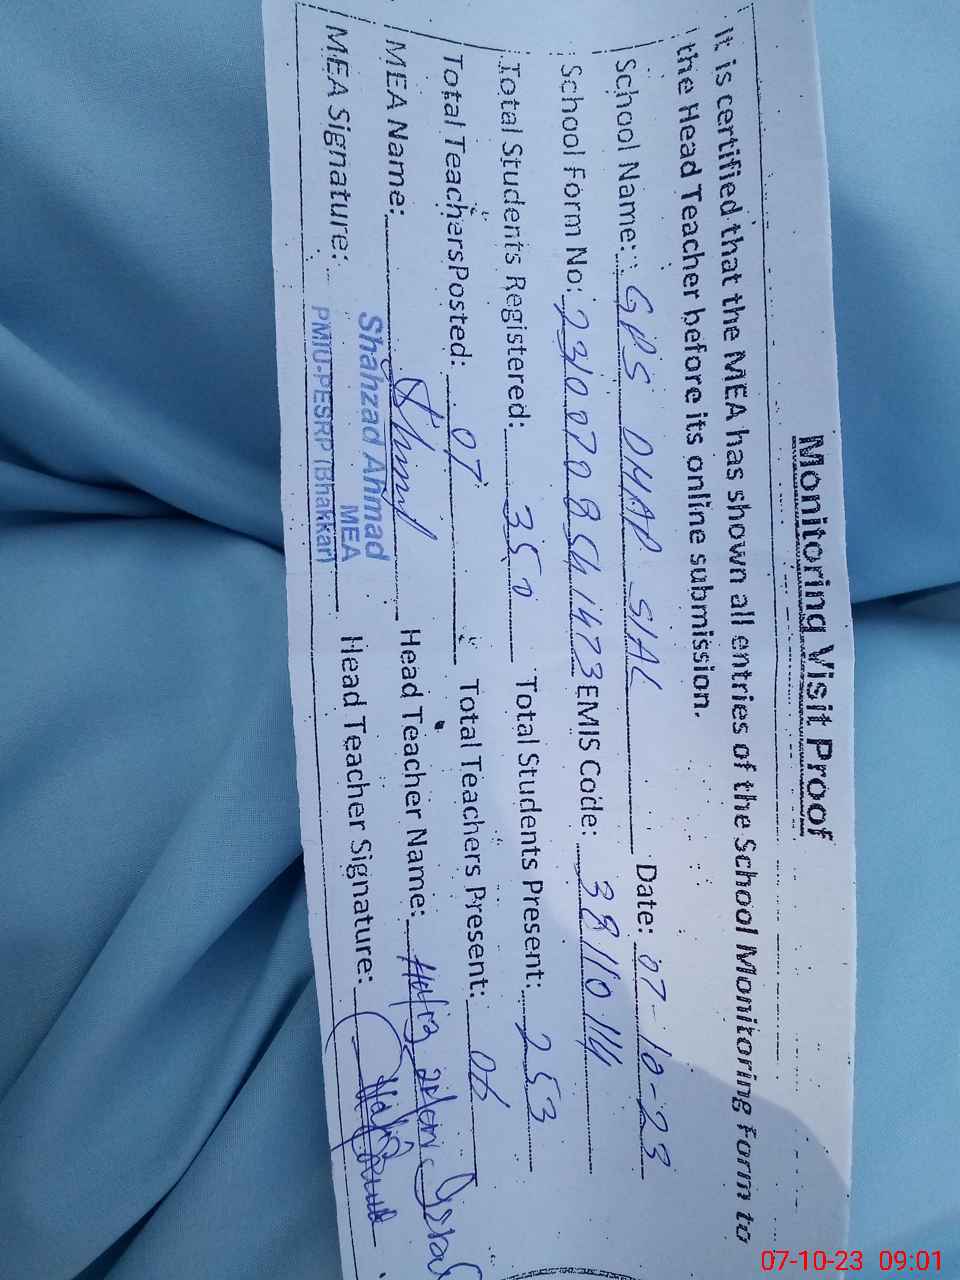 Monitoring Visit Proof
It is certified that the MEA has shown all entries of the School Monitoring Form to
the Head Teacher before its online submission.
School Name: GPS DHAP SIAL Date: 07-10-23
School Form No: 23100708541473 EMIS Code: 38110114
Total Students Registered: 350 Total Students Present: 253
Total Teachers Posted: 07 Total Teachers Present: 06
MEA Name: Head Teacher Name: Hafiz
Shahzad Ahmad
MEA
MEA Signature: Head Teacher Signature:
PMIU-PESRP (Bhakkar)
07-10-23 09:01